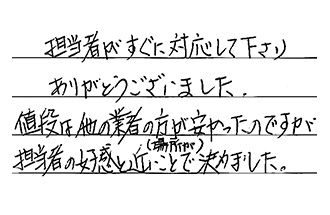 担当者がすぐに対応して下さり
ありがとうございました。
値段は他の業者の方が安かったのですが
(場所が)
担当者の好感と近いことで決めました。